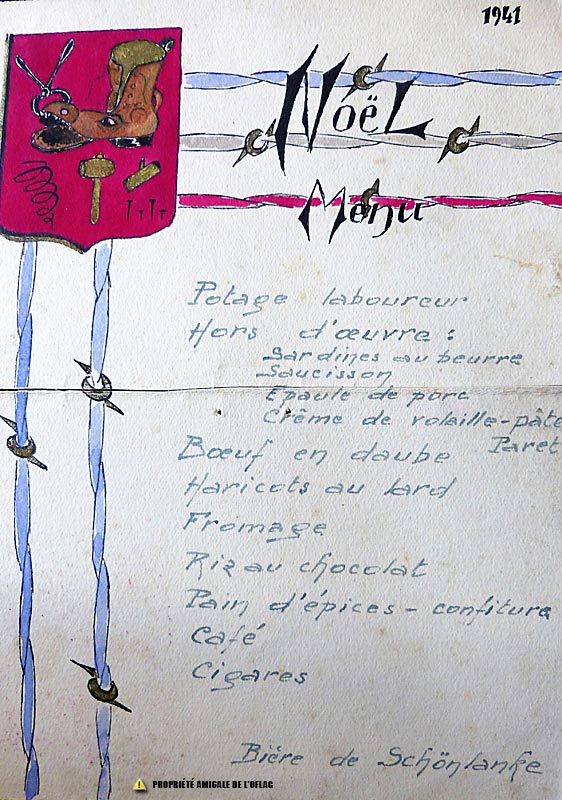 1941
Noël
Menu
Potage laboureur
Hors d'œuvre :
Sardines au beurre
Saucisson
Epaule de porc
Crême de volaille-pâté
Paret
Bœuf en daube
Haricots au lard
Fromage
Riz au chocolat
Pain d'épices - confiture
Café
Cigares
Bière de Schönlanke
PROPRIÉTÉ AMIGALE DE L'OFLAG